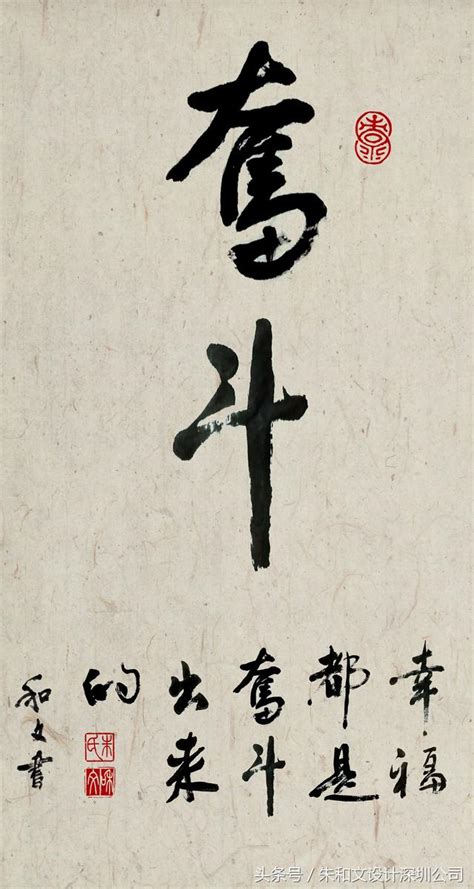 奮斗
幸福
都是
奮斗
出来
的
和文書
头条号 / 朱和文设计深圳公司